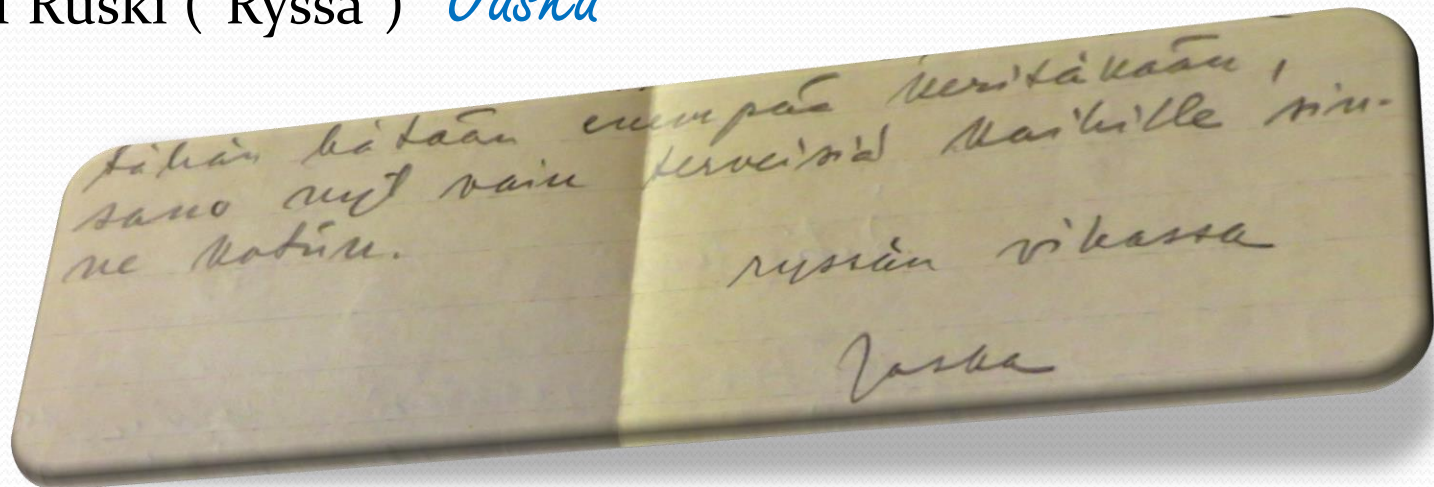 Ruski ("Ryssä") Jaska
tähän hätään enempää keritäkään,
sano nyt vain terveisiä kaikille sin-
ne kotiin.
ryssän vihassa
Jaska